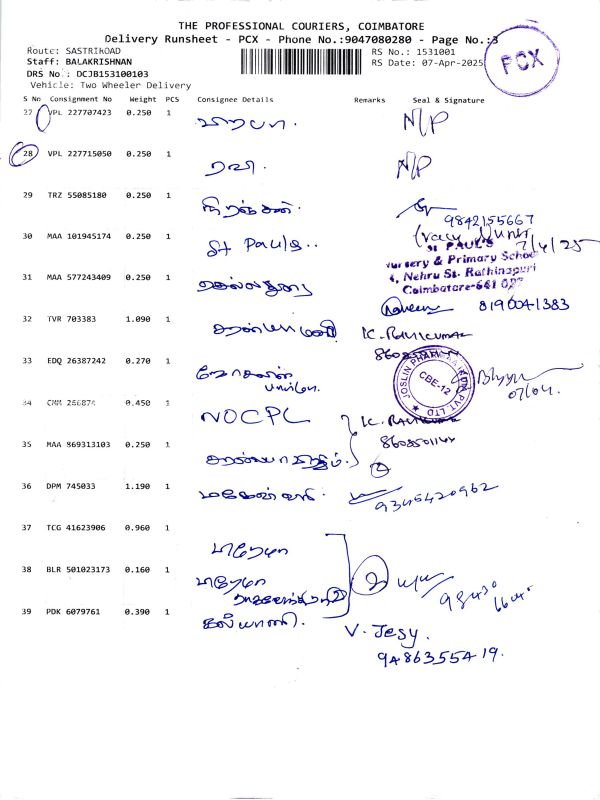 THE PROFESSIONAL COURIERS, COIMBATORE
Delivery Runsheet - PCX - Phone No.:9047080280 - Page No.:3
Route: SASTRIROAD
RS No.: 1531001
Staff: BALAKRISHNAN
RS Date: 07-Apr-2025
PCX
DRS No.: DCJB153100103
Vehicle: Two Wheeler Delivery
S No Consignment No Weight PCS Consignee Details Remarks Seal & Signature
27 VPL 227707423 0.250 1 N/P
28 VPL 227715050 0.250 1 ரவி. N/P
29 TRZ 55085180 0.250 1 நிரஞ்சன்.
9842155667
30 MAA 101945174 0.250 1 St Pauls..
7/4/25
St PAUL'S
Nursery & Primary School
4, Nehru St. Rathinapuri
Coimbatore-641 027
31 MAA 577243409 0.250 1 செல்லதுரை
Naveen 8190041383
32 TVR 703383 1.090 1 K. RAVIKUMAR
33 EDQ 26387242 0.270 1
JOSLIN PHARMA PVT LTD
CBE-12
07/04.
34 CMM 256874 0.450 1 NOCPL K. RAVIKUMAR
35 MAA 869313103 0.250 1
2
36 DPM 745033 1.190 1 மகேஸ்வரி.
9345420962
37 TCG 41623906 0.960 1
38 BLR 501023173 0.160 1
39 PDK 6079761 0.390 1 கல்யாணி.
V. Jesy.
9486355419.